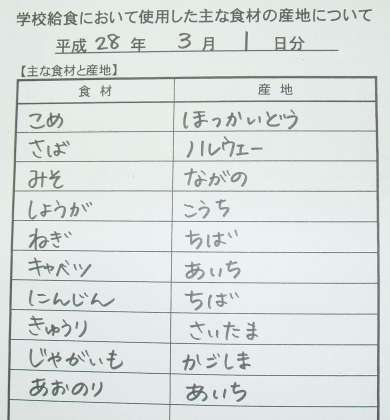 学校給食において使用した主な食材の産地について
平成 28 年 3 月 1 日分
【主な食材と産地】
食材 産地
こめ ほっかいどう
さば ハルウェー
みそ ながの
しょうが こうち
ねぎ ちば
キャベツ あいち
にんじん ちば
きゅうり さいたま
じゃがいも かごしま
あおのり あいち